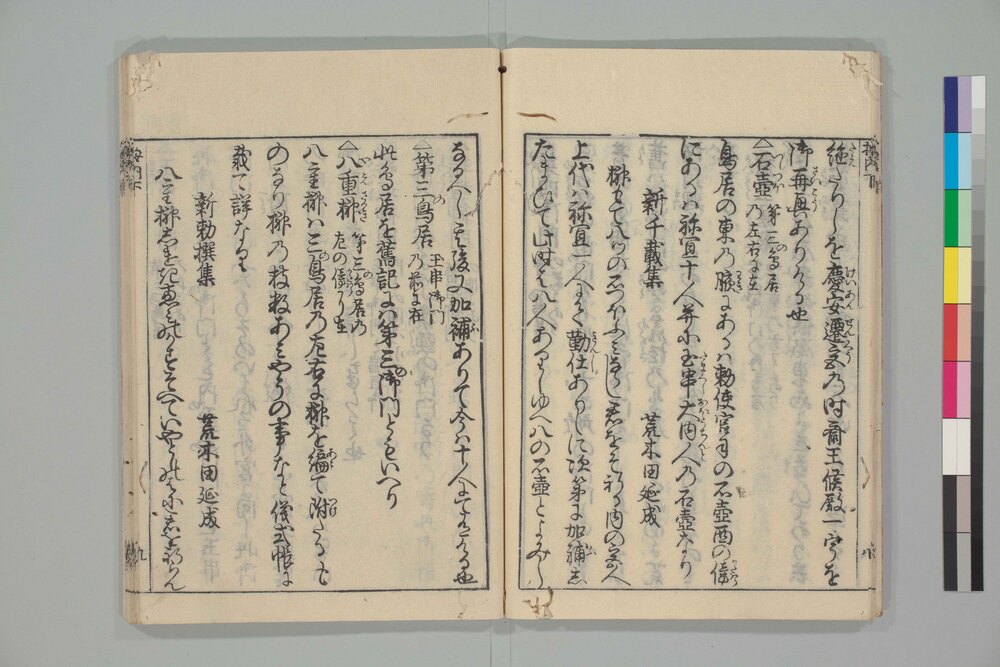 絶たりしを慶安遷宮の時斎王候殿一宇を
御再興ありける也
△石壺 第三鳥居の左右に在
鳥居の東の腋にあるハ勅使官司の石壺西の傍
にあるハ祢宜十人并に玉串大内人の石壺なり
新千載集 荒木田延成
榊もて八ツの石つほふミならし君をそ祈る内の宮人
上代ハ祢宜一人にて勤仕ありしに次第に加補し
たまひて此時は八人ありしゆへ八の石壺とよみし
なるへし其後又加補ありて今ハ十人にてある也
△第三鳥居 玉串御門の前に在
此鳥居を舊記にハ第三御門ともいへり
△八重榊 第三鳥居の左の傍に在
八重榊ハ三鳥居の左右に榊を編て附たるも
のなり榊の枝数あミやうの事なと儀式帳に
載て詳なり
新勅撰集 荒木田延成
八重榊しけき恵の